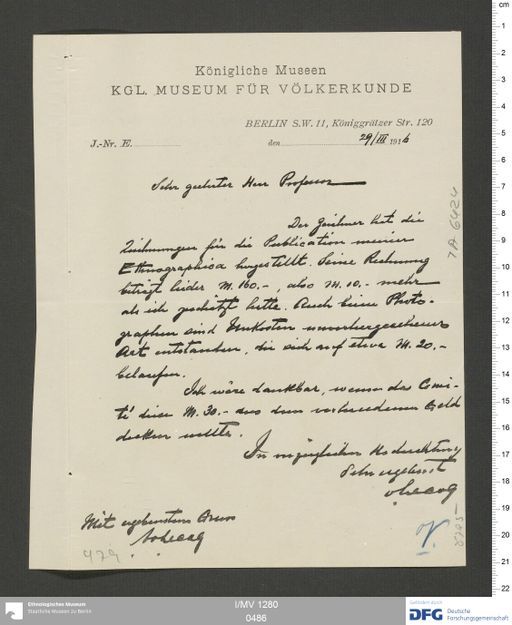 Königliche Museen
KGL. MUSEUM FÜR VÖLKERKUNDE
BERLIN S.W. 11, Königgrätzer Str. 120
J.-Nr. E.
den 29/III 1916
Sehr geehrter Herr Professor
Der Zeichner hat die
Zeichnungen für die Publication meiner
Ethnographica hergestellt. Seine Rechnung
beträgt leider M. 160.–, also M. 10.– mehr
als ich geschätzt hatte. Auch beim Photo-
graphen sind Unkosten unvorhergesehener
Art entstanden, die sich auf etwa M. 20.–
belaufen.
Ich wäre dankbar, wenn das Comi-
té diese M. 30.– aus dem vorhandenen Geld
decken wollte.
In vorzüglicher Hochachtung
Sehr ergebenst
Mit ergebenstem Gruss
479
IA 6424
I/MV 1280
0486
Ethnologisches Museum
Staatliche Museen zu Berlin
Gefördert durch
DFG
Deutsche
Forschungsgemeinschaft
cm
1
2
3
4
5
6
7
8
9
10
11
12
13
14
15
16
17
18
19
20
21
22